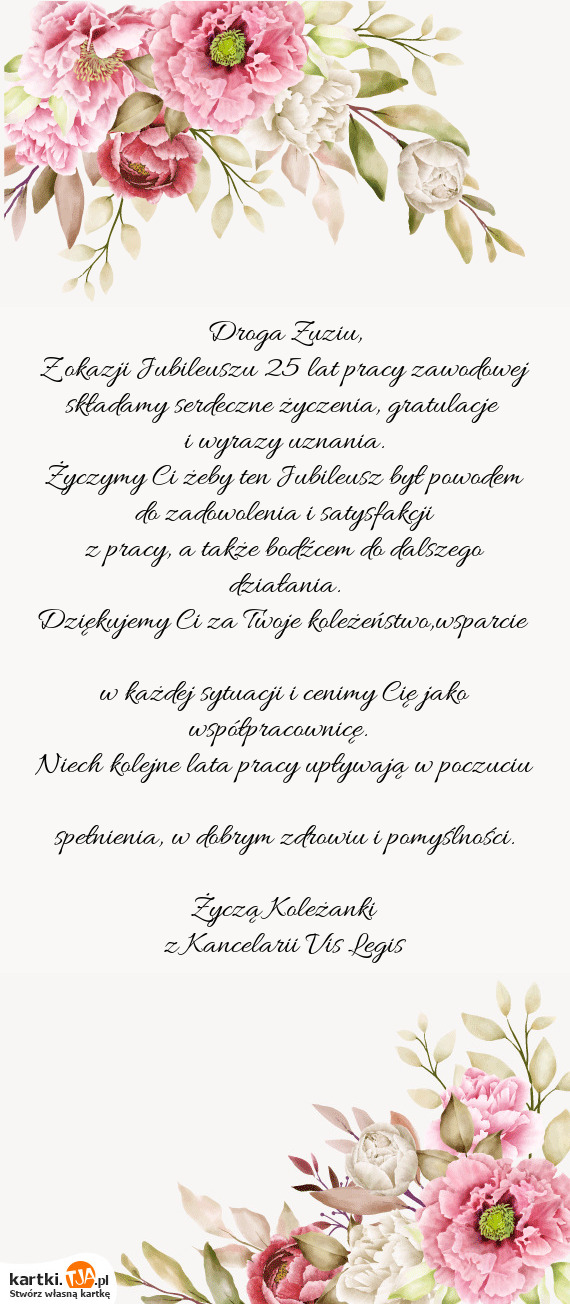 Droga Zuziu,
Z okazji Jubileuszu 25 lat pracy zawodowej
składamy serdeczne życzenia, gratulacje
i wyrazy uznania.
Życzymy Ci żeby ten Jubileusz był powodem
do zadowolenia i satysfakcji
z pracy, a także bodźcem do dalszego
działania.
Dziękujemy Ci za Twoje koleżeństwo,wsparcie
w każdej sytuacji i cenimy Cię jako
współpracownicę.
Niech kolejne lata pracy upływają w poczuciu
spełnienia, w dobrym zdrowiu i pomyślności.
Życzą Koleżanki
z Kancelarii Vis Legis
kartki.TJA.pl
Stwórz własną kartkę